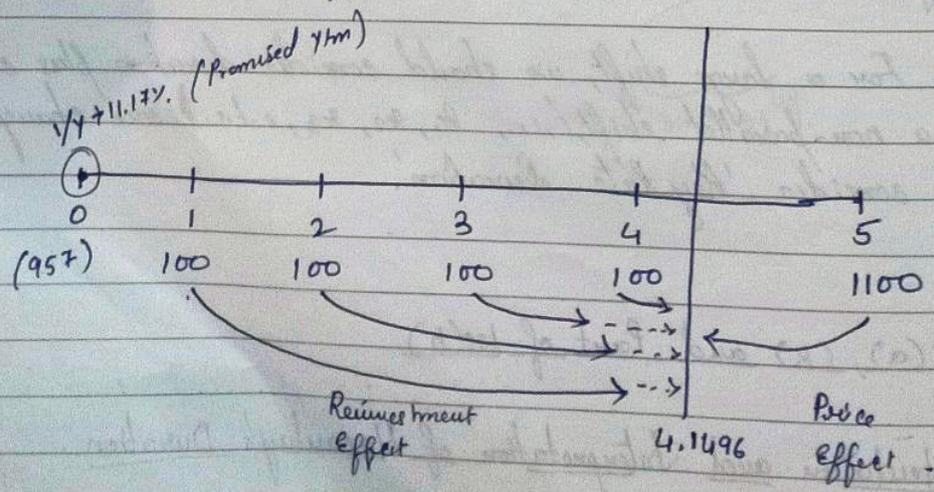 I/Y → 11.17%. (Promised Ytm)
0 1 2 3 4 5
(957) 100 100 100 100 1100
Reinvestment Effect
4.1496
Price Effect